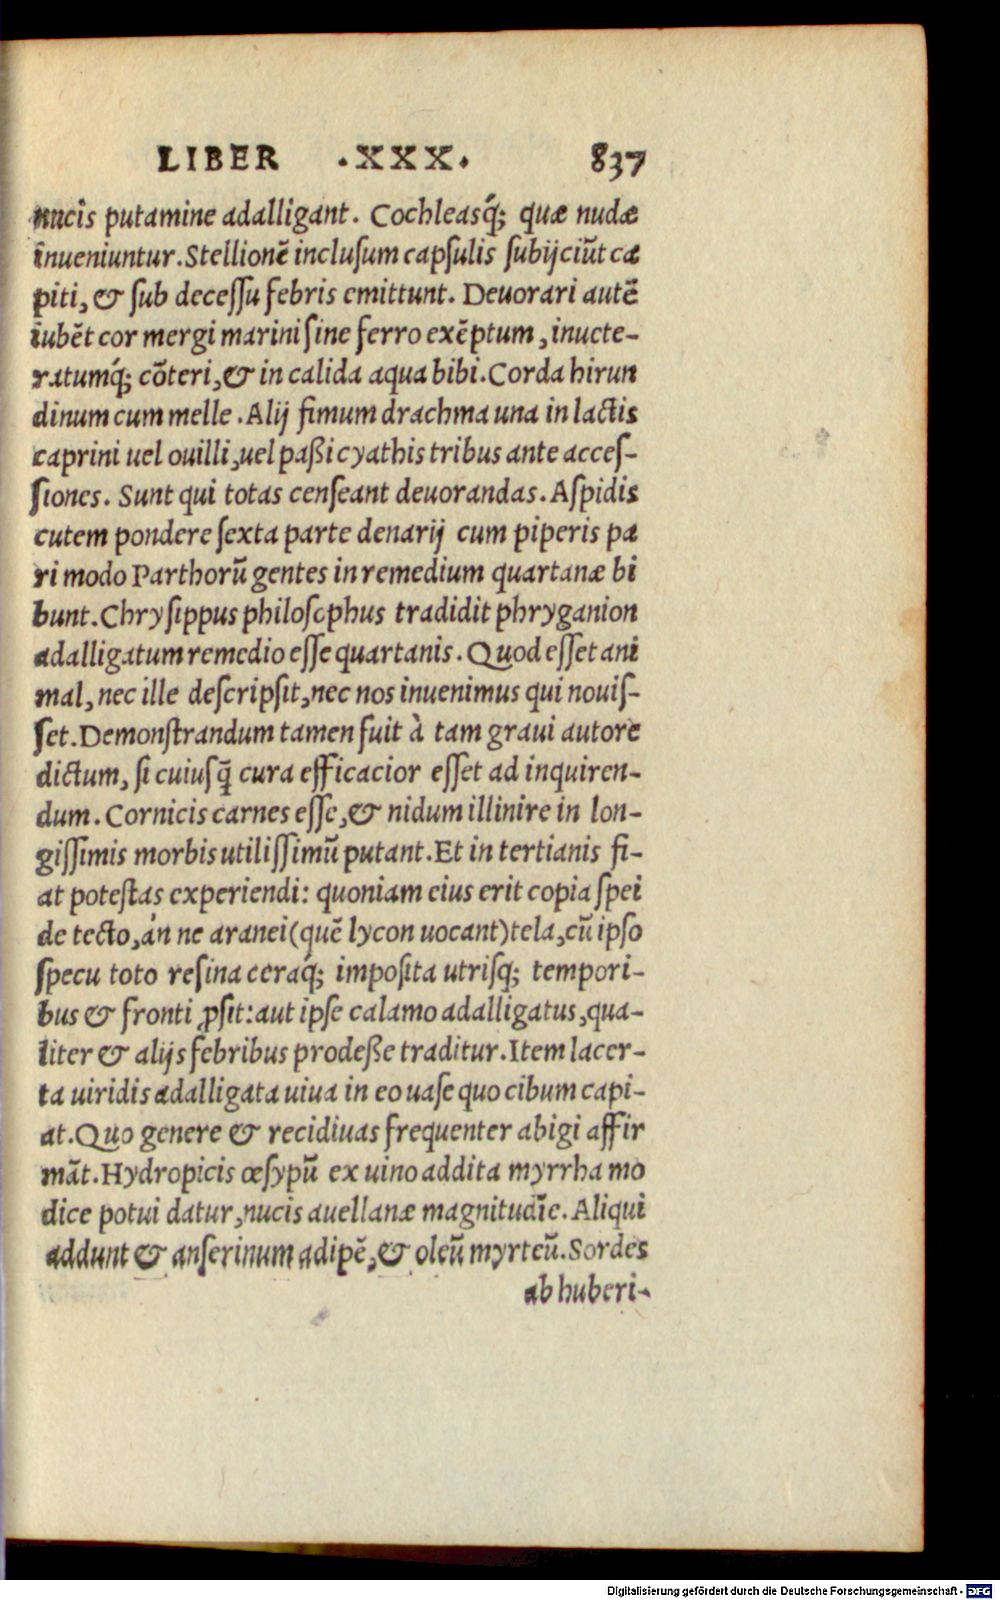 LIBER .XXX. 837
nucis putamine adalligant. Cochleasq́; quæ nudæ
inueniuntur. Stellionē inclusum capsulis subijciūt ca
piti, & sub decessu febris emittunt. Deuorari autē
iubēt cor mergi marini sine ferro exēptum, inuete-
ratumq́; cōteri, & in calida aqua bibi. Corda hirun
dinum cum melle. Alij fimum drachma una in lactis
caprini uel ouilli, uel paßi cyathis tribus ante acces-
siones. Sunt qui totas censeant deuorandas. Aspidis
cutem pondere sexta parte denarij cum piperis pa
ri modo Parthorū gentes in remedium quartanæ bi
bunt. Chrysippus philosophus tradidit phryganion
adalligatum remedio esse quartanis. Quod esset ani
mal, nec ille descripsit, nec nos inuenimus qui nouis-
set. Demonstrandum tamen fuit à tam graui autore
dictum, si cuiusq̄ cura efficacior esset ad inquiren-
dum. Cornicis carnes esse, & nidum illinire in lon-
gissimis morbis utilissimū putant. Et in tertianis fi-
at potestas experiendi: quoniam eius erit copia spei
de tecto, án ne aranei (quē lycon uocant) tela, cū ipso
specu toto resina ceraq́; imposita utrisq; tempori-
bus & fronti ꝓsit: aut ipse calamo adalligatus, qua-
liter & alijs febribus prodeße traditur. Item lacer-
ta uiridis adalligata uiua in eo uase quo cibum capi-
at. Quo genere & recidiuas frequenter abigi affir
māt. Hydropicis œsypū ex uino addita myrrha mo
dice potui datur, nucis auellanæ magnitudīe. Aliqui
addunt & anserinum adipē, & oleū myrteū. Sordes
ab huberi-
Digitalisierung gefördert durch die Deutsche Forschungsgemeinschaft - DFG